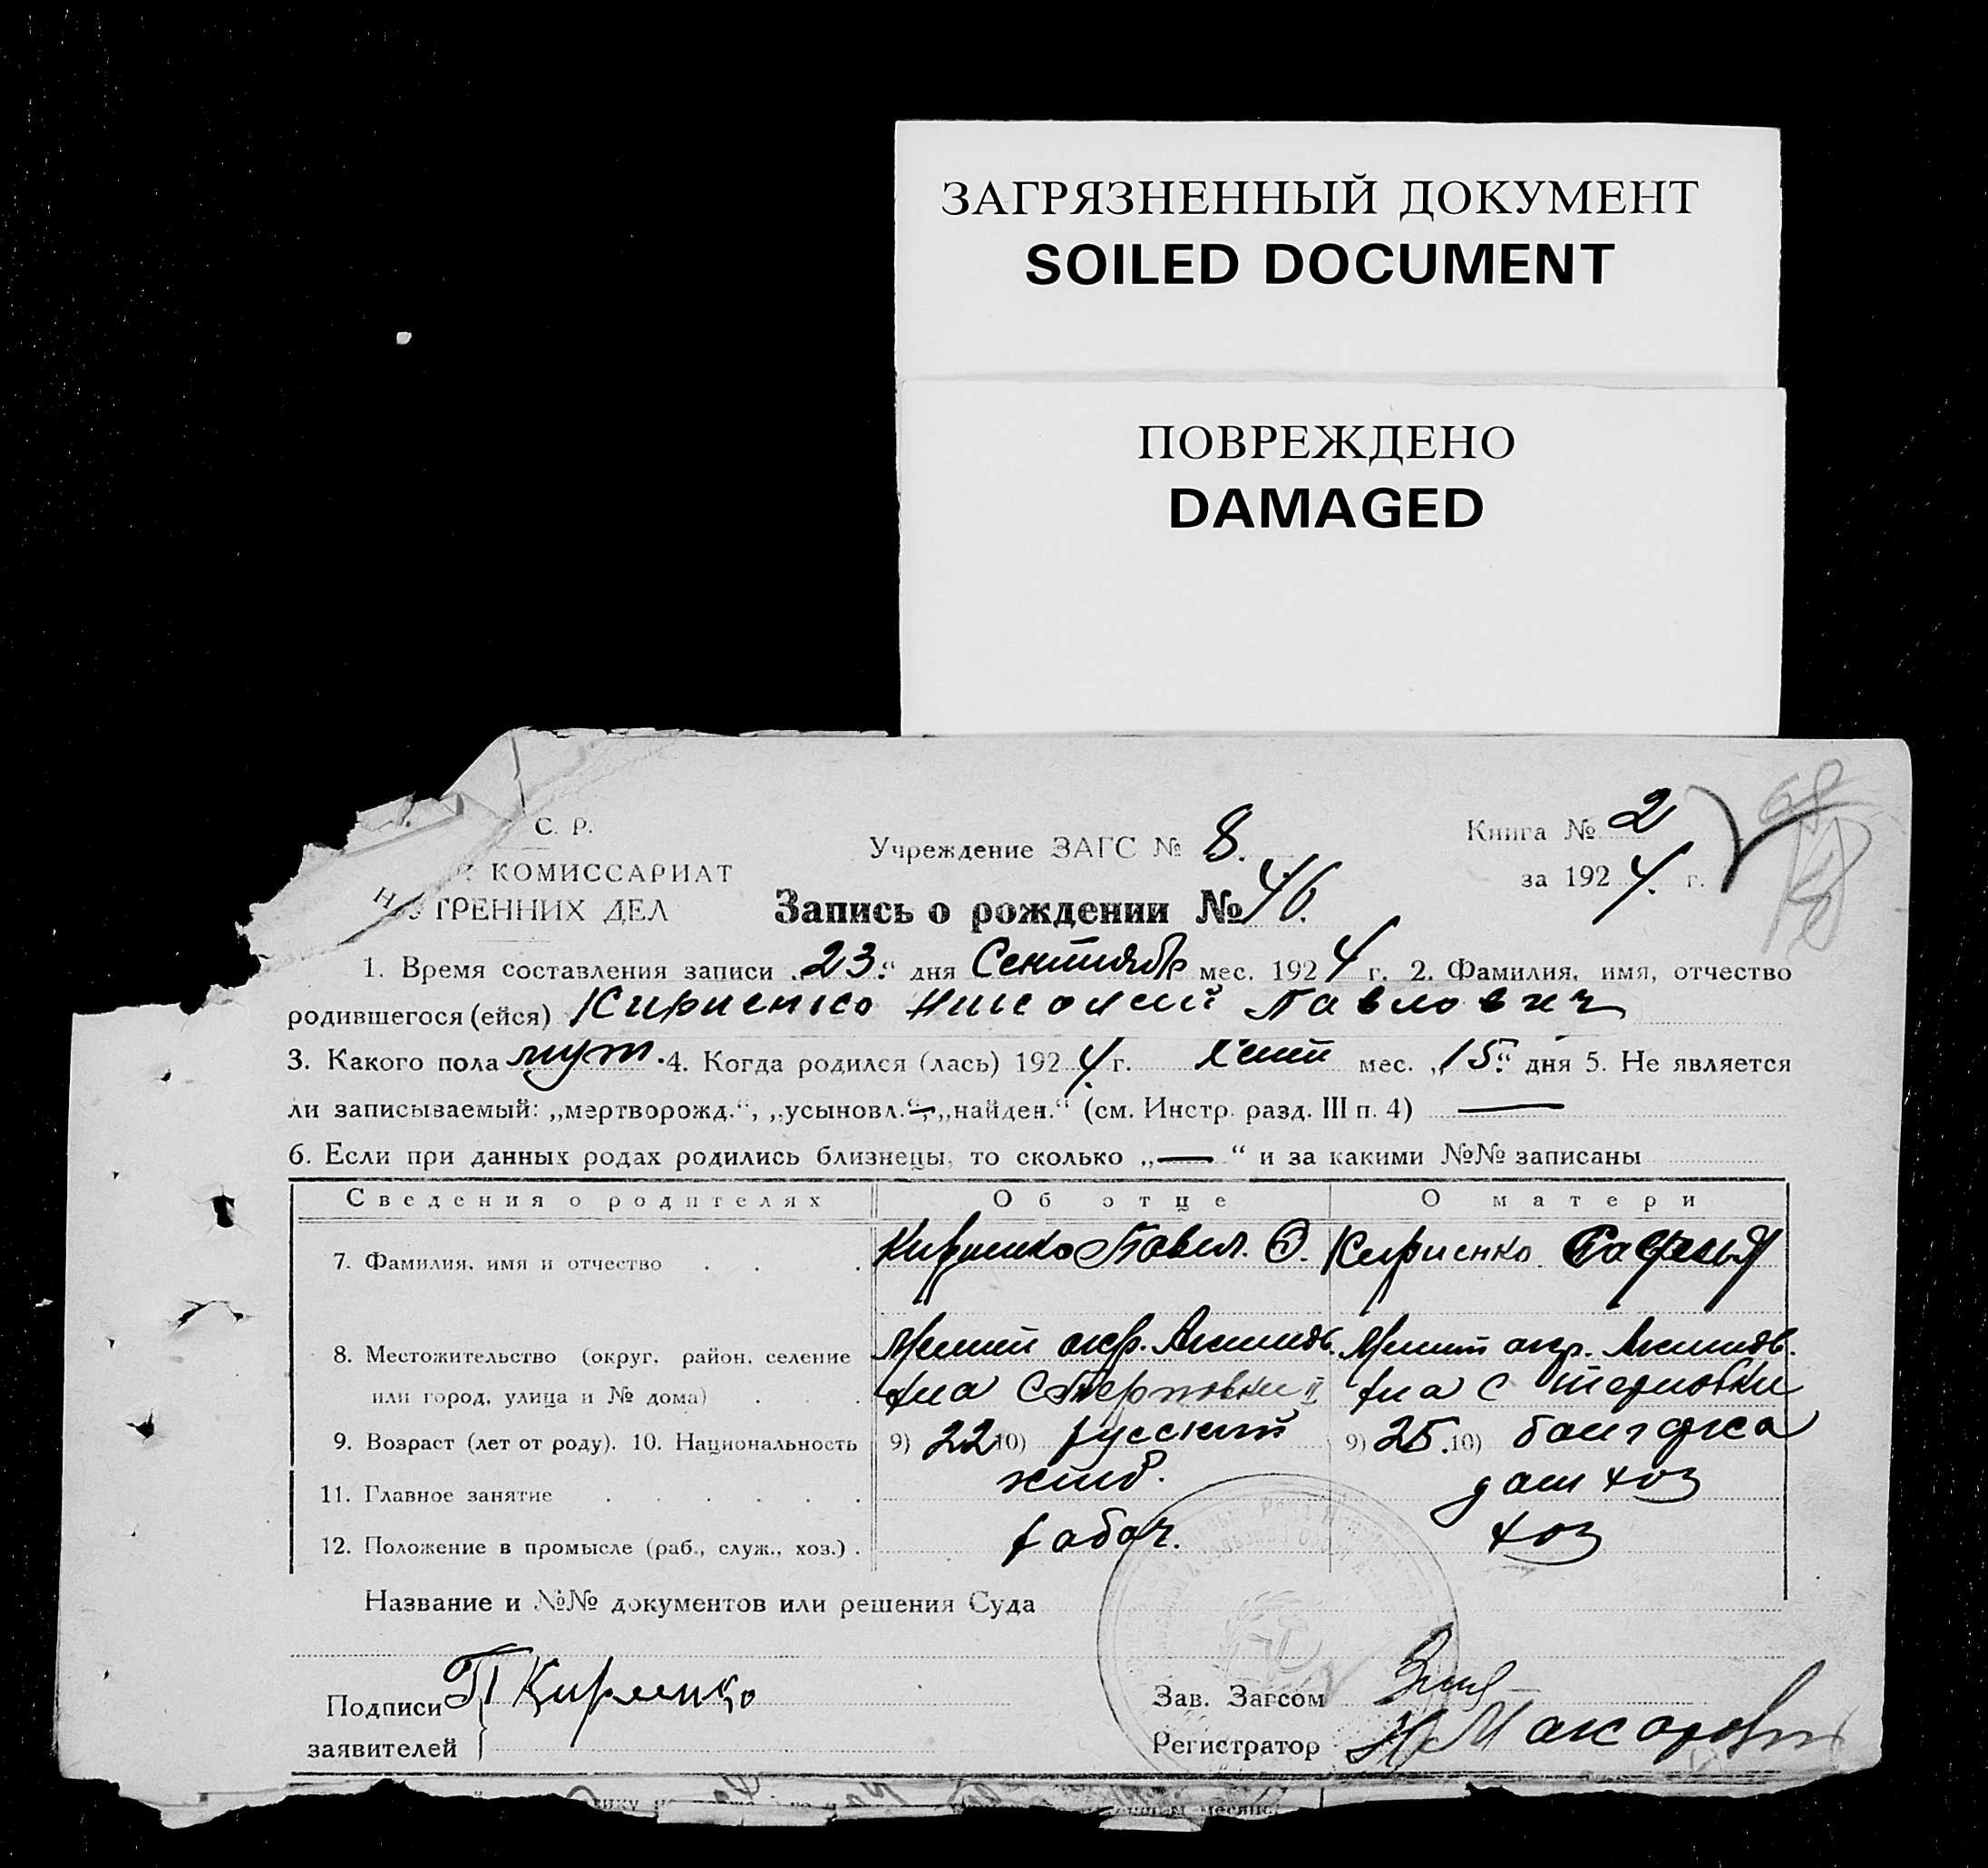 ЗАГРЯЗНЕННЫЙ ДОКУМЕНТ
SOILED DOCUMENT
ПОВРЕЖДЕНО
DAMAGED
С. Р.
КОМИССАРИАТ
ТРЕННИХ ДЕЛ
Учреждение ЗАГС № 8.
Книга № 2
за 1924. г.
Запись о рождении № 46.
1. Время составления записи „23.“ дня Сентября мес. 1924 г. 2. Фамилия, имя, отчество
родившегося (ейся) Кириенко Николай Павлович
3. Какого пола муж. 4. Когда родился (лась) 1924 г. Сент мес. „15.“ дня 5. Не является
ли записываемый: „мертворожд.“, „усыновл.“, „найден.“ (см. Инстр. разд. III п. 4) —
6. Если при данных родах родились близнецы, то сколько „—“ и за какими №№ записаны
Сведения о родителях Об отце О матери
7. Фамилия, имя и отчество . . . Кириенко Павел. Кириенко
8. Местожительство (округ, район, селение окр. окр.
или город, улица и № дома) . . . с с
9. Возраст (лет от роду). 10. Национальность 9) 22 10) русский 9) 25. 10)
11. Главное занятие . . . . . . дом хоз
12. Положение в промысле (раб., служ., хоз.) . рабоч. хоз
Название и №№ документов или решения Суда
Подписи П Кириенко
заявителей
Зав. Загсом
Регистратор